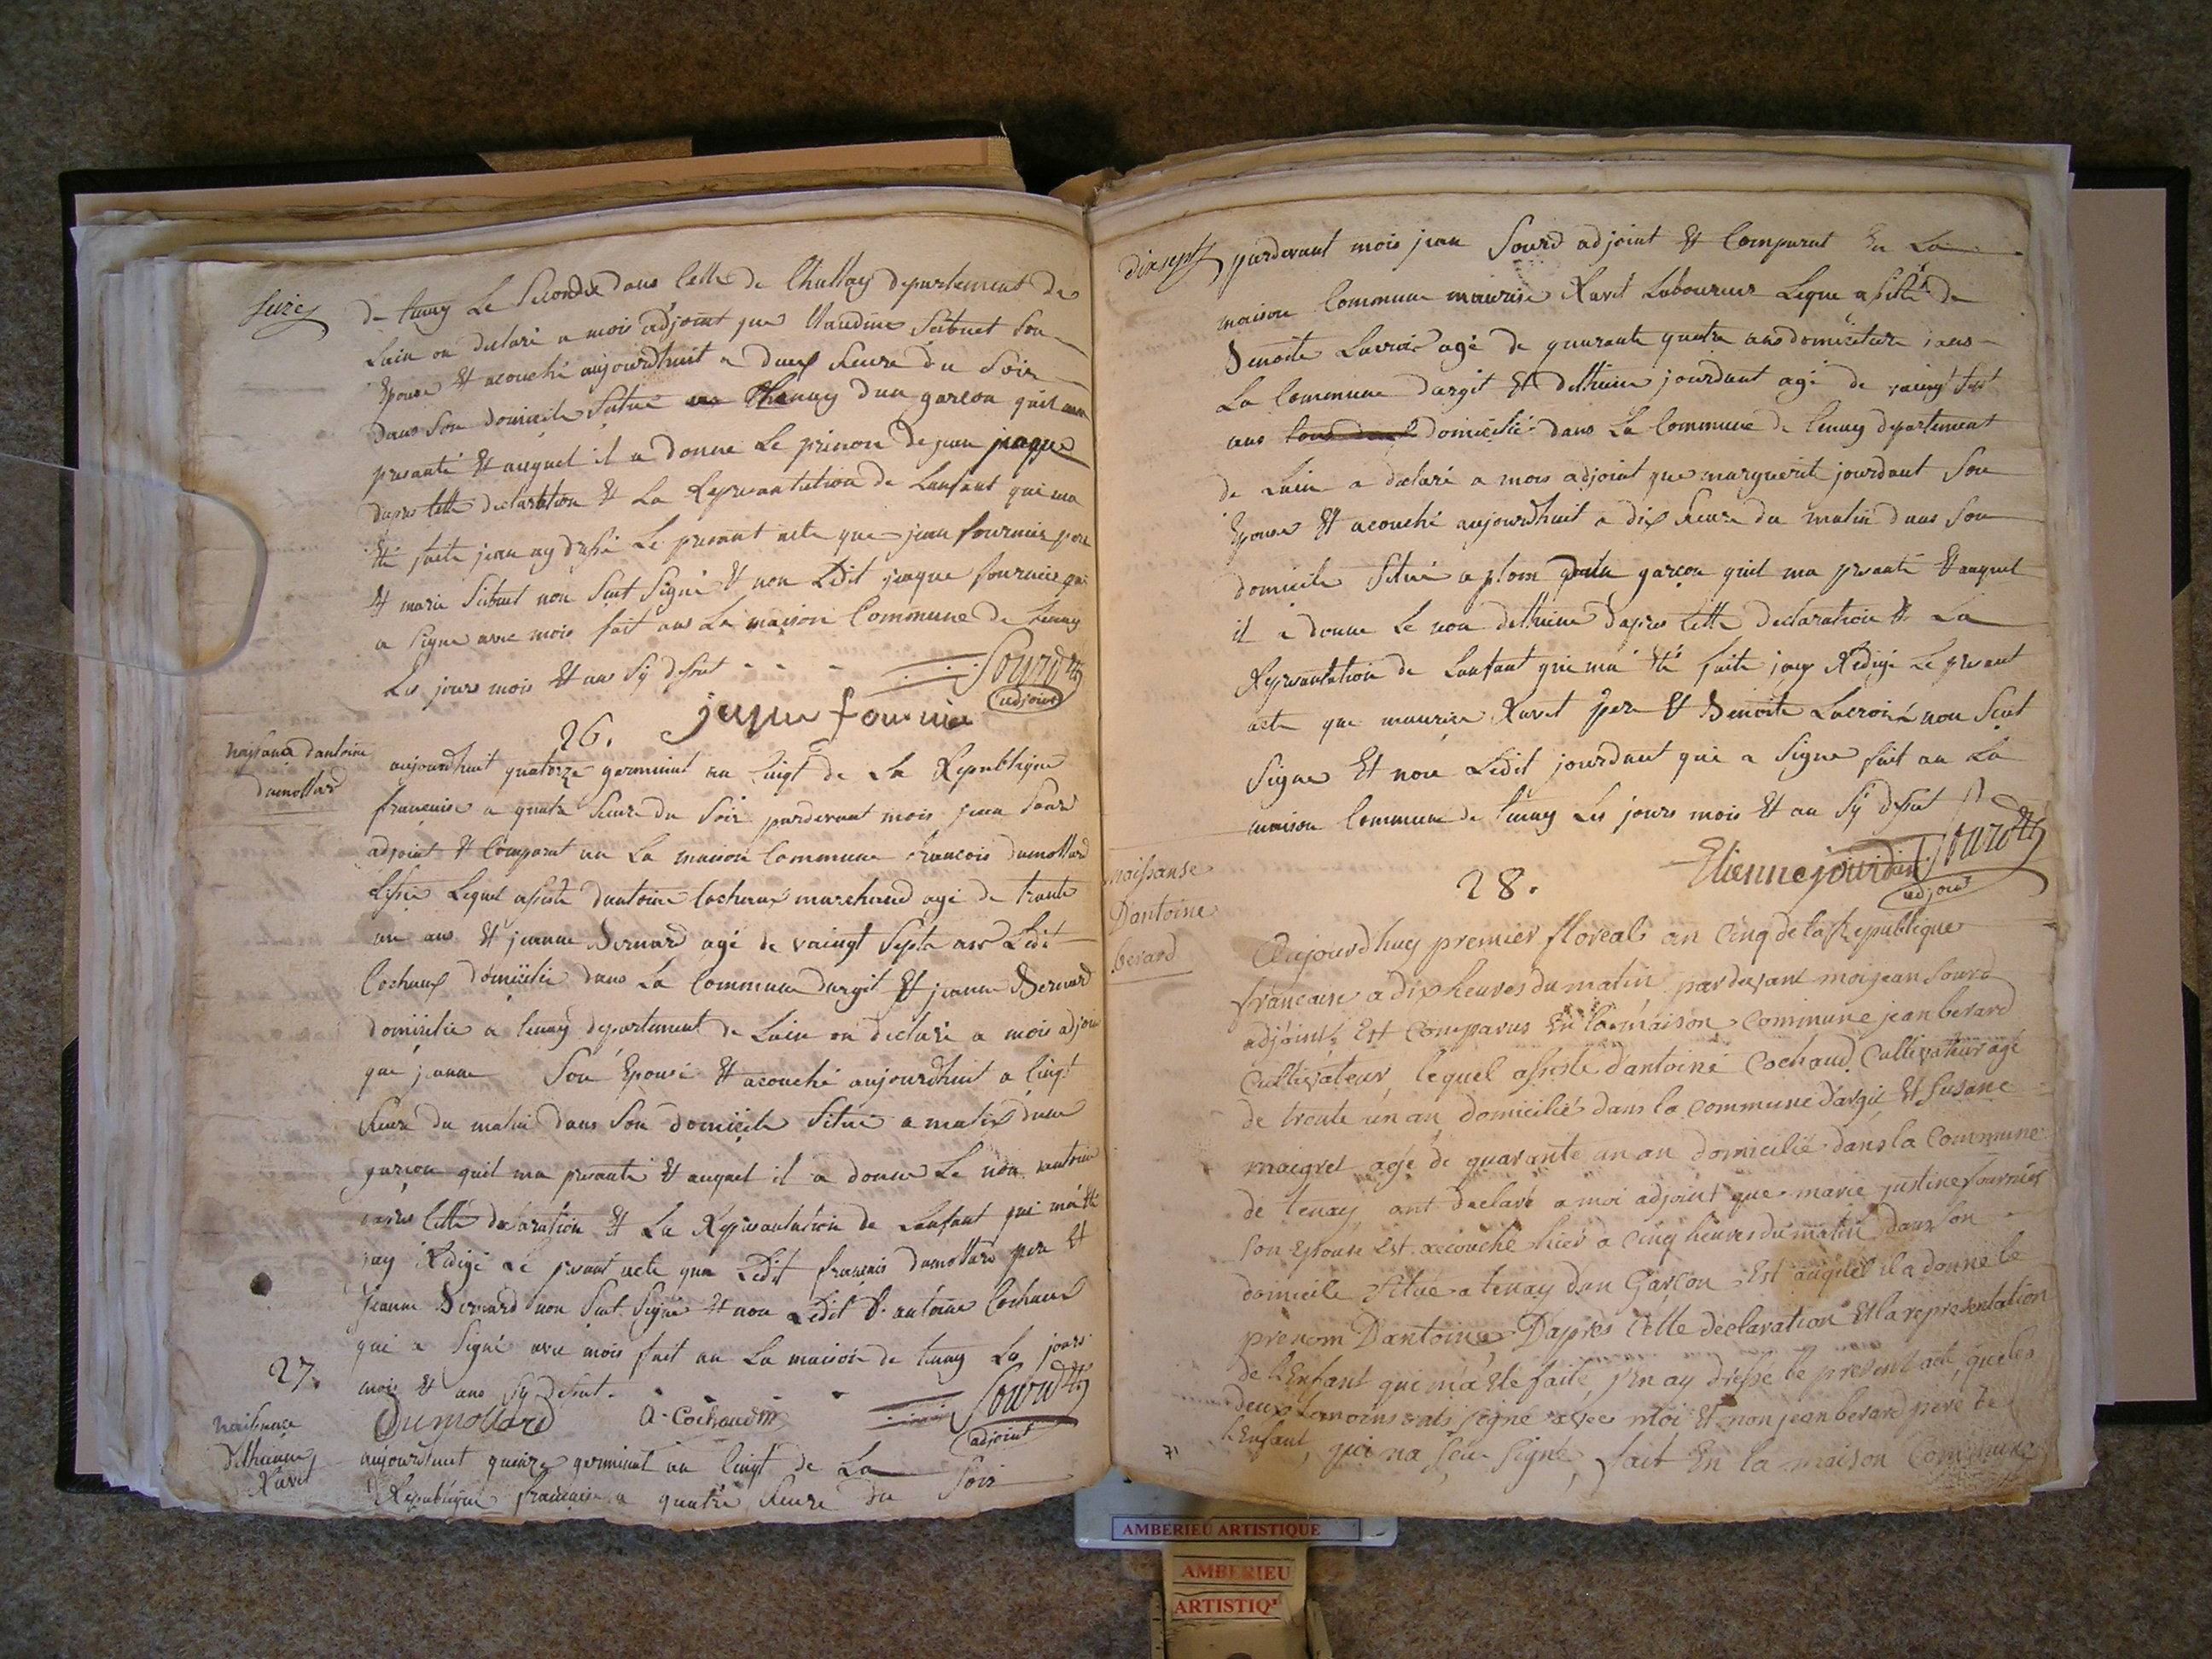 seize
de tenay Le Seconde dans Celle de Chaley departement de
Lain on declaré a mois adjoint que Claudine Sibuet Son
Epouse Et acouché aujourdhuit a deux heure du Soir
Dans Son domicile Situé Thenay dun garcon quil ma
presanté Et auquel il a donne Le prenon de jean jaque
dapres Cette declaration Et La Représantation de Lanfant qui ma
été faite jean ay dressé Le presant acte que jean fournier pere
Et marie Sibuet non Seut Signé Et non Ledit jaque fournier qui
a Signe avec mois fait ans La maison Commune de tenay
Les jours mois Et ans Sy desut
Sourd
adjoint
jaque fournier
26.
naissance dantoine
dumollard
aujourdhuit quatorze germinal an Cinqt de La Republique
francaise a quatre heure du Soir pardevant mois jean Sourd
adjoint Et Comparut an La maison Commune francois dumollard
Lequel assisté dantoine Cochaux marchand agé de trante
un ans Et jeanne Bernard agé de vaingt Septe ans Ledit
Cochaux domicilié dans La Commune dargit Et jeanne Bernard
domicilié a tenay departement de Lain on declaré a mois adjoint
que jeanne Son Epouse Et acouché aujourdhuit a Cinqt
heure du matin dans Son domicile Situé a malix dun
garcon quil ma presanté Et auquel il a donne Le non dantoine
dapres Cette declaration Et La Represantation de Lanfant qui ma été
jay Rédigé Le presant acte que Ledit francois dumollard pere Et
jeanne Bernard non Seut Signé Et non Ledit antoine Cochaux
qui a Signé avec mois fait an La maison de tenay Les jours
mois Et ans Sy desut.
Dumollard A. Cochaud
Sourd
adjoint
27.
naissance
dethienne
Ravet
aujourdhuit quinze germinal an Cinqt de La
Republique francaise a quatre heure du Soir
dixsept
pardevant mois jean Sourd adjoint Et Comparut En La
maison Commune maurise Ravet Laboureur Leque assisté de
Benoite Lacroix agé de quarante quatre ans domicilié dans
La Commune dargit Et dethienne jourdant agé de vaingt Sept
ans domicilié dans La Commune de tenay departement
de Lain a declaré a mois adjoint que marguerit jourdant Son
Epouse Et acouché aujourdhuit a dix heure du matin dans Son
domicile Situé a plom garçon quil ma presanté Et auquel
il a donne Le non dethienne dapres Cette declaration Et La
Represantation de Lanfant qui ma été faite jay Rédigé Le presant
acte que maurise Ravet pere Et Benoite Lacroix non Seut
Signe Et non Ledit jourdant qui a Signe fait an La
maison Commune de tenay Les jours mois Et an Sy desut
Etienne jourdan Sourd
adjoint
28.
naissanse
D'antoine
berard
Aujourdhuy premier floreal an Cinq de la Republique
francaise a dix heures du matin pardevant moi jean Sourd
adjoint Est Comparus En la maison Commune jean berard
Cultivateur, lequel assisté d'antoine Cochaud Cultivateur agé
de trente un an domicilié dans la Commune d'argit Et Susane
maigret agé de quarante un an domicilié dans la Commune
de tenay, ont declaré a moi adjoint que marie justine fournier
Son Epouse Est accouché hier a Cinq heures du matin dans Son
domicile Situé a tenay dun Garcon Est auquel il a donné le
prenom Dantoine, D'apres Cette declaration Et la representation
de l'Enfant qui m'a Eté faite, j'En ay dressé le present acte, que les
deux temoins onts signé avec moi Et non jean berard pere de
L'Enfant, qui na Seu Signé, fait En la maison Commune
71
AMBERIEU ARTISTIQUE
AMBERIEU
ARTISTIQ